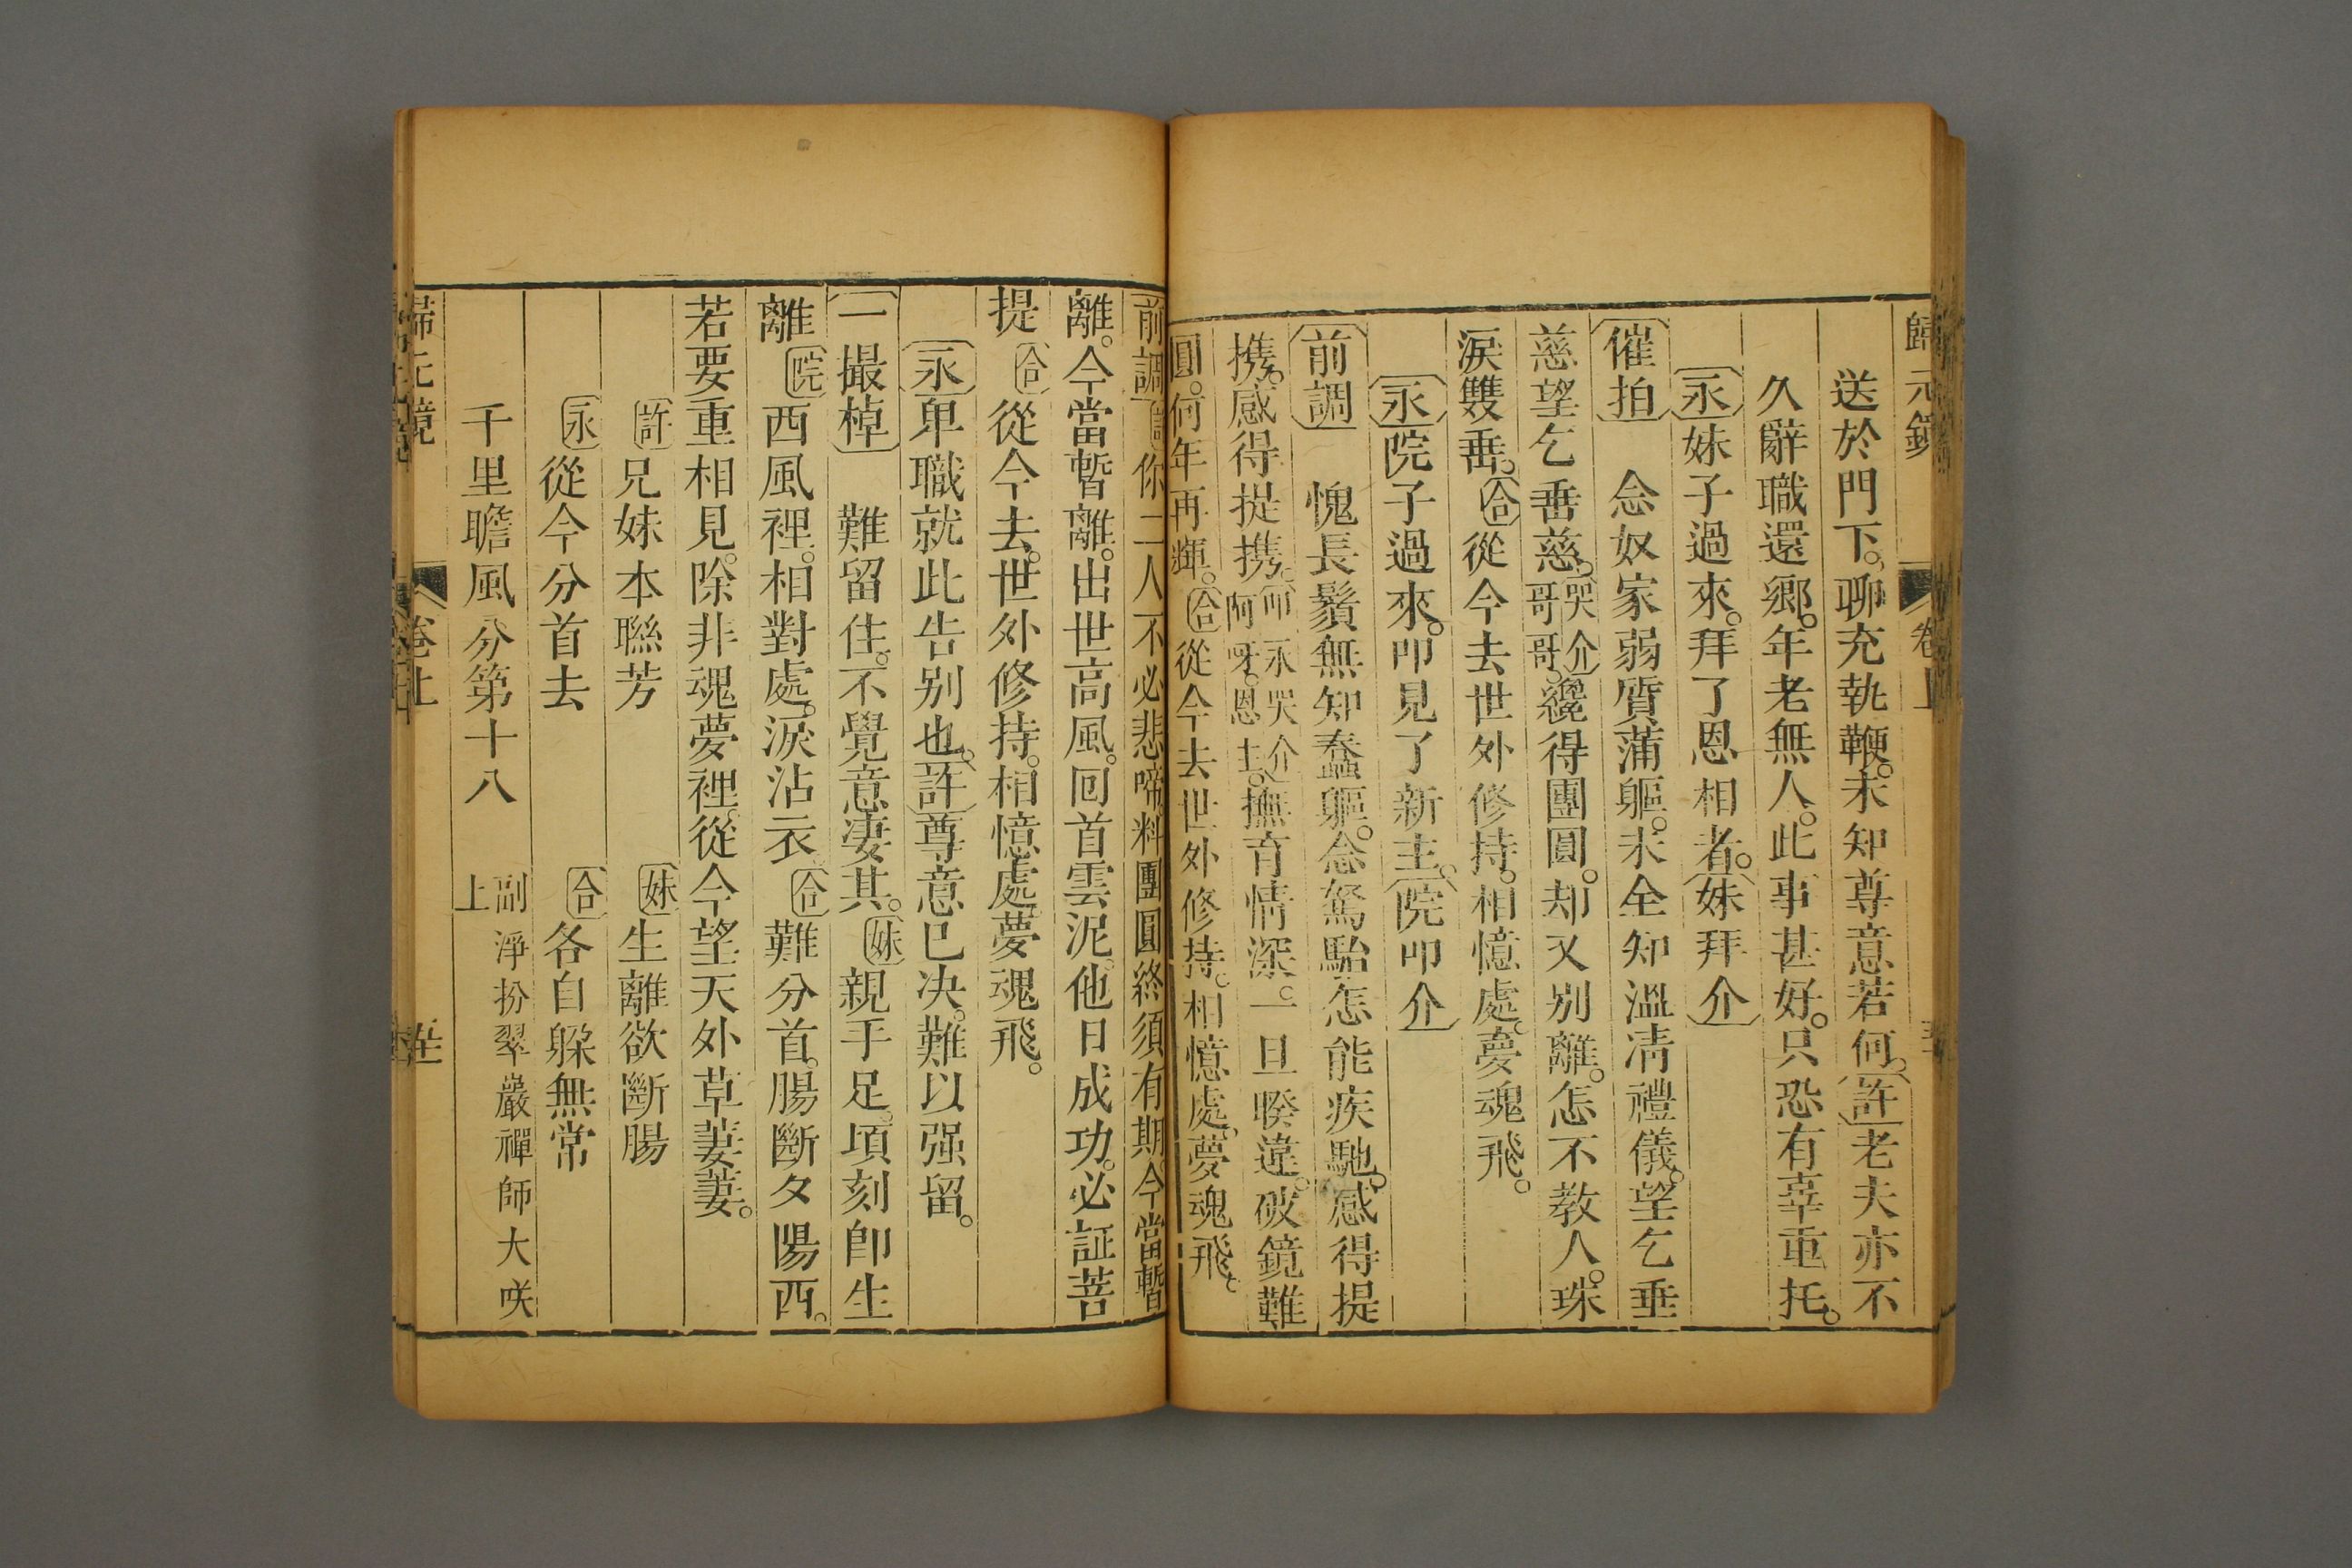 歸元鏡 卷上
送於門下。聊充執鞭。未知尊意若何。許老夫亦不
久辭職還鄉。年老無人。此事甚好。只恐有辜重托。
永妹子過來。拜了恩相者。妹拜介
催拍 念奴家弱質蒲軀。未全知溫凊禮儀。望乞垂
慈望乞垂慈。哭介哥哥。纔得團圓。却又別離。怎不教人。珠
淚雙垂。合從今去世外修持。相憶處。夢魂飛。
永院子過來。叩見了新主。院叩介
前調 愧長鬚無知蠢軀。念駑駘怎能疾馳。感得提
携。感得提携。叩永哭介阿呀。恩主。撫育情深。一旦暌違。破鏡難
圓。何年再輝。合從今去世外修持。相憶處。夢魂飛。
前調許你二人不必悲啼。料團圓終須有期。今當暫
離。今當暫離。出世高風。回首雲泥。他日成功。必証菩
提合從今去。世外修持。相憶處。夢魂飛。
永卑職就此告别也。許尊意已决。難以强留。
一撮棹 難留住。不覺意凄其。妹親手足。頃刻即生
離院西風裡。相對處。淚沾衣合難分首。腸斷夕陽西。
若要重相見。除非魂夢裡。從今望天外草萋萋。
許兄妹本聯芳 妹生離欲斷腸
永從今分首去 合各自躲無常
千里瞻風分第十八 副淨扮翠巖禪師大咲上
歸元鏡 卷上